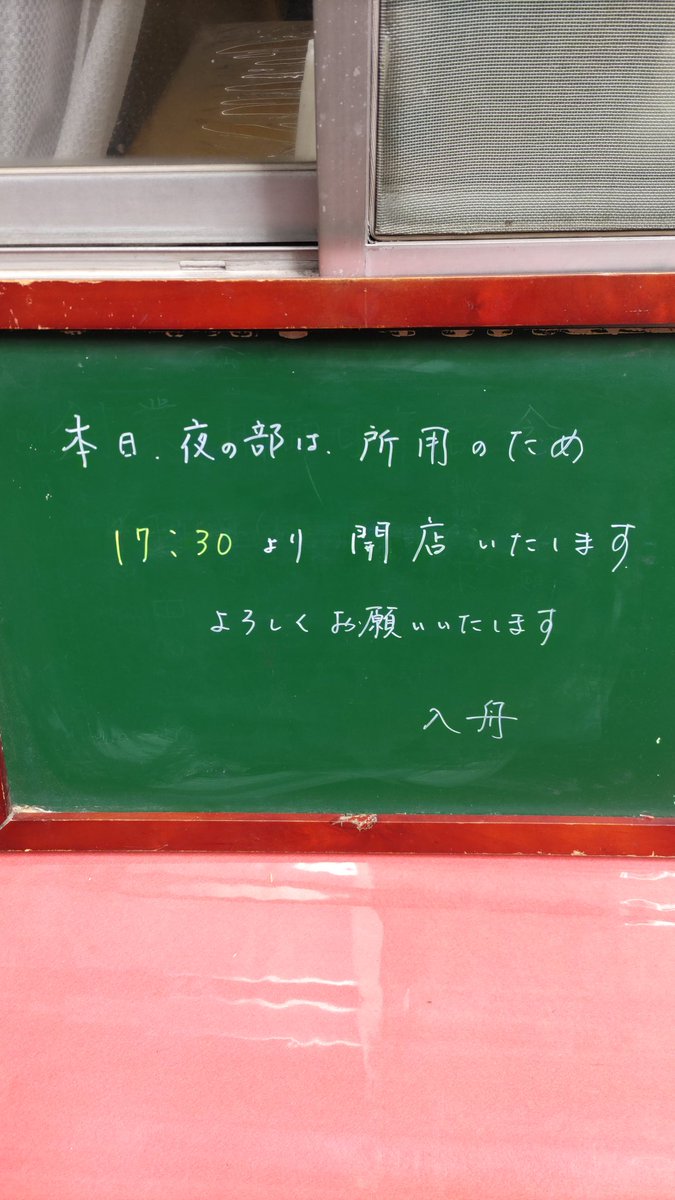 本日、夜の部は、所用のため
17:30より 開店いたします
よろしくお願いいたします
入舟